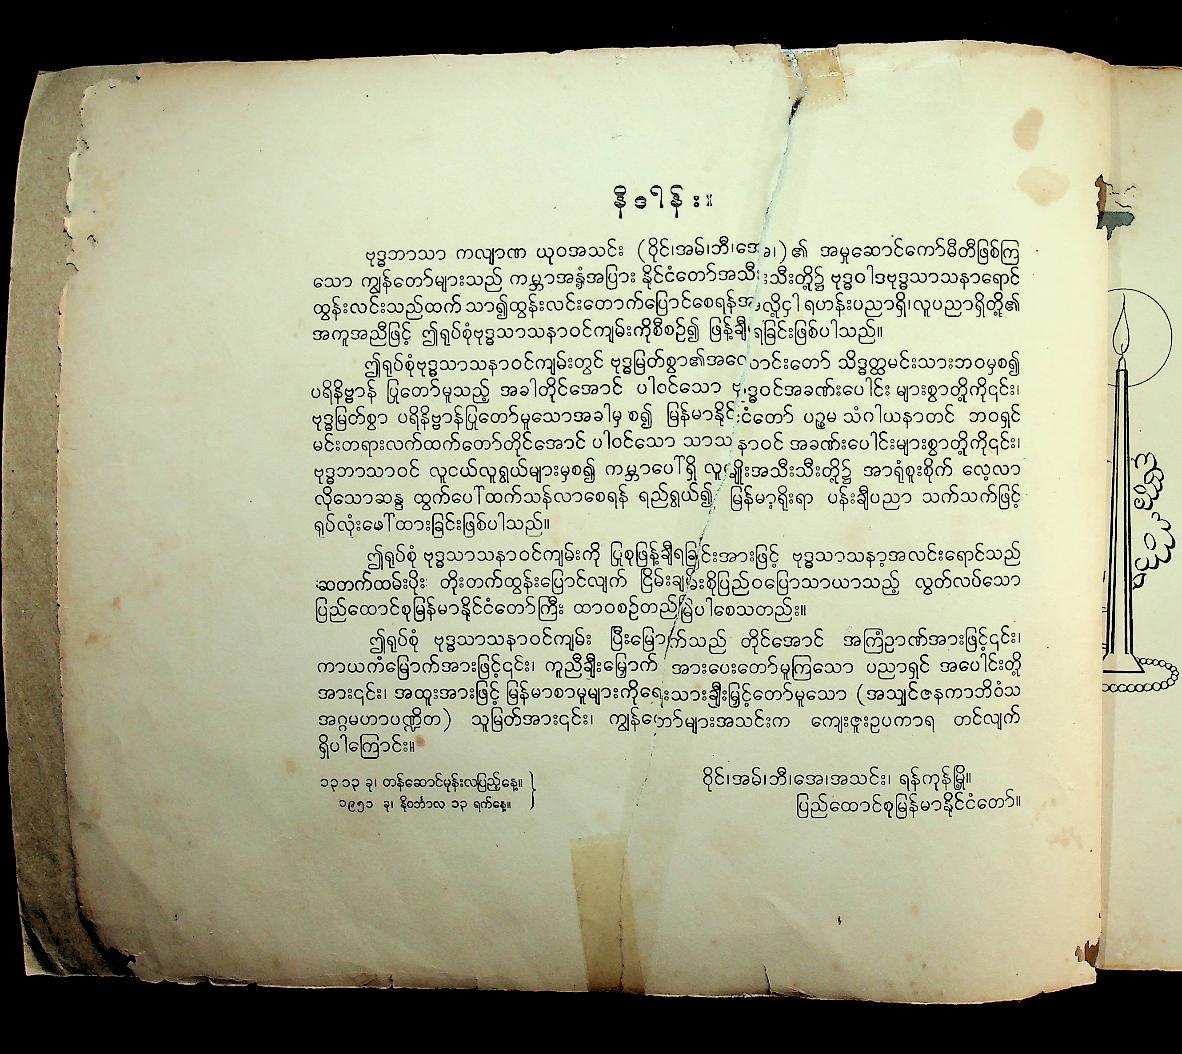 နိဒါန်း။
ဗုဒ္ဓဘာသာ ကလျာဏ ယုဝအသင်း (ဝိုင်၊အမ်၊ဘီ၊အေ၊)၏ အမှုဆောင်ကော်မီတီဖြစ်ကြ
သော ကျွန်တော်များသည် ကမ္ဘာအနှံ့အပြား နိုင်ငံတော်အသီးသီးတို့၌ ဗုဒ္ဓဝါဒဗုဒ္ဓသာသနာရောင်
ထွန်းလင်းသည်ထက် သာ၍ထွန်းလင်းတောက်ပြောင်စေရန်အလို့ငှါ ရဟန်းပညာရှိ၊လူပညာရှိတို့၏
အကူအညီဖြင့် ဤရုပ်စုံဗုဒ္ဓသာသနာဝင်ကျမ်းကိုစီစဉ်၍ ဖြန့်ချီရခြင်းဖြစ်ပါသည်။
ဤရုပ်စုံဗုဒ္ဓသာသနာဝင်ကျမ်းတွင် ဗုဒ္ဓမြတ်စွာ၏အလောင်းတော် သိဒ္ဓတ္ထမင်းသားဘဝမှစ၍
ပရိနိဗ္ဗာန် ပြုတော်မူသည့် အခါတိုင်အောင် ပါဝင်သော ဗုဒ္ဓဝင်အခဏ်းပေါင်း များစွာတို့ကို၎င်း၊
ဗုဒ္ဓမြတ်စွာ ပရိနိဗ္ဗာန်ပြုတော်မူသောအခါမှ စ၍ မြန်မာနိုင်ငံတော် ပဉ္စမ သံဂါယနာတင် ဘဝရှင်
မင်းတရားလက်ထက်တော်တိုင်အောင် ပါဝင်သော သာသနာဝင် အခဏ်းပေါင်းများစွာတို့ကို၎င်း၊
ဗုဒ္ဓဘာသာဝင် လူငယ်လူရွယ်များမှစ၍ ကမ္ဘာပေါ်ရှိ လူမျိုးအသီးသီးတို့၌ အာရုံစူးစိုက် လေ့လာ
လိုသောဆန္ဒ ထွက်ပေါ်ထက်သန်လာစေရန် ရည်ရွယ်၍ မြန်မာ့ရိုးရာ ပန်းချီပညာ သက်သက်ဖြင့်
ရုပ်လုံးဖော်ထားခြင်းဖြစ်ပါသည်။
ဤရုပ်စုံ ဗုဒ္ဓသာသနာဝင်ကျမ်းကို ပြုစုဖြန့်ချီရခြင်းအားဖြင့် ဗုဒ္ဓသာသနာ့အလင်းရောင်သည်
ဆတက်ထမ်းပိုး တိုးတက်ထွန်းပြောင်လျက် ငြိမ်းချမ်းစိုပြည်ဝပြောသာယာသည့် လွတ်လပ်သော
ပြည်ထောင်စုမြန်မာနိုင်ငံတော်ကြီး ထာဝစဉ်တည်မြဲပါစေသတည်း။
ဤရုပ်စုံ ဗုဒ္ဓသာသနာဝင်ကျမ်း ပြီးမြောက်သည် တိုင်အောင် အကြံဉာဏ်အားဖြင့်၎င်း၊
ကာယကံမြောက်အားဖြင့်၎င်း၊ ကူညီချီးမြှောက် အားပေးတော်မူကြသော ပညာရှင် အပေါင်းတို့
အား၎င်း၊ အထူးအားဖြင့် မြန်မာစာမူများကိုရေးသားချီးမြှင့်တော်မူသော (အသျှင်ဇနကာဘိဝံသ
အဂ္ဂမဟာပဏ္ဍိတ) သူမြတ်အား၎င်း၊ ကျွန်တော်များအသင်းက ကျေးဇူးဥပကာရ တင်လျက်
ရှိပါကြောင်း။
၁၃၁၃ ခု၊ တန်ဆောင်မုန်းလပြည့်နေ့။
၁၉၅၁ ခု၊ နိုဝင်ဘာလ ၁၃ ရက်နေ့။
ဝိုင်၊အမ်၊ဘီ၊အေ၊အသင်း၊ ရန်ကုန်မြို့။
ပြည်ထောင်စုမြန်မာနိုင်ငံတော်။